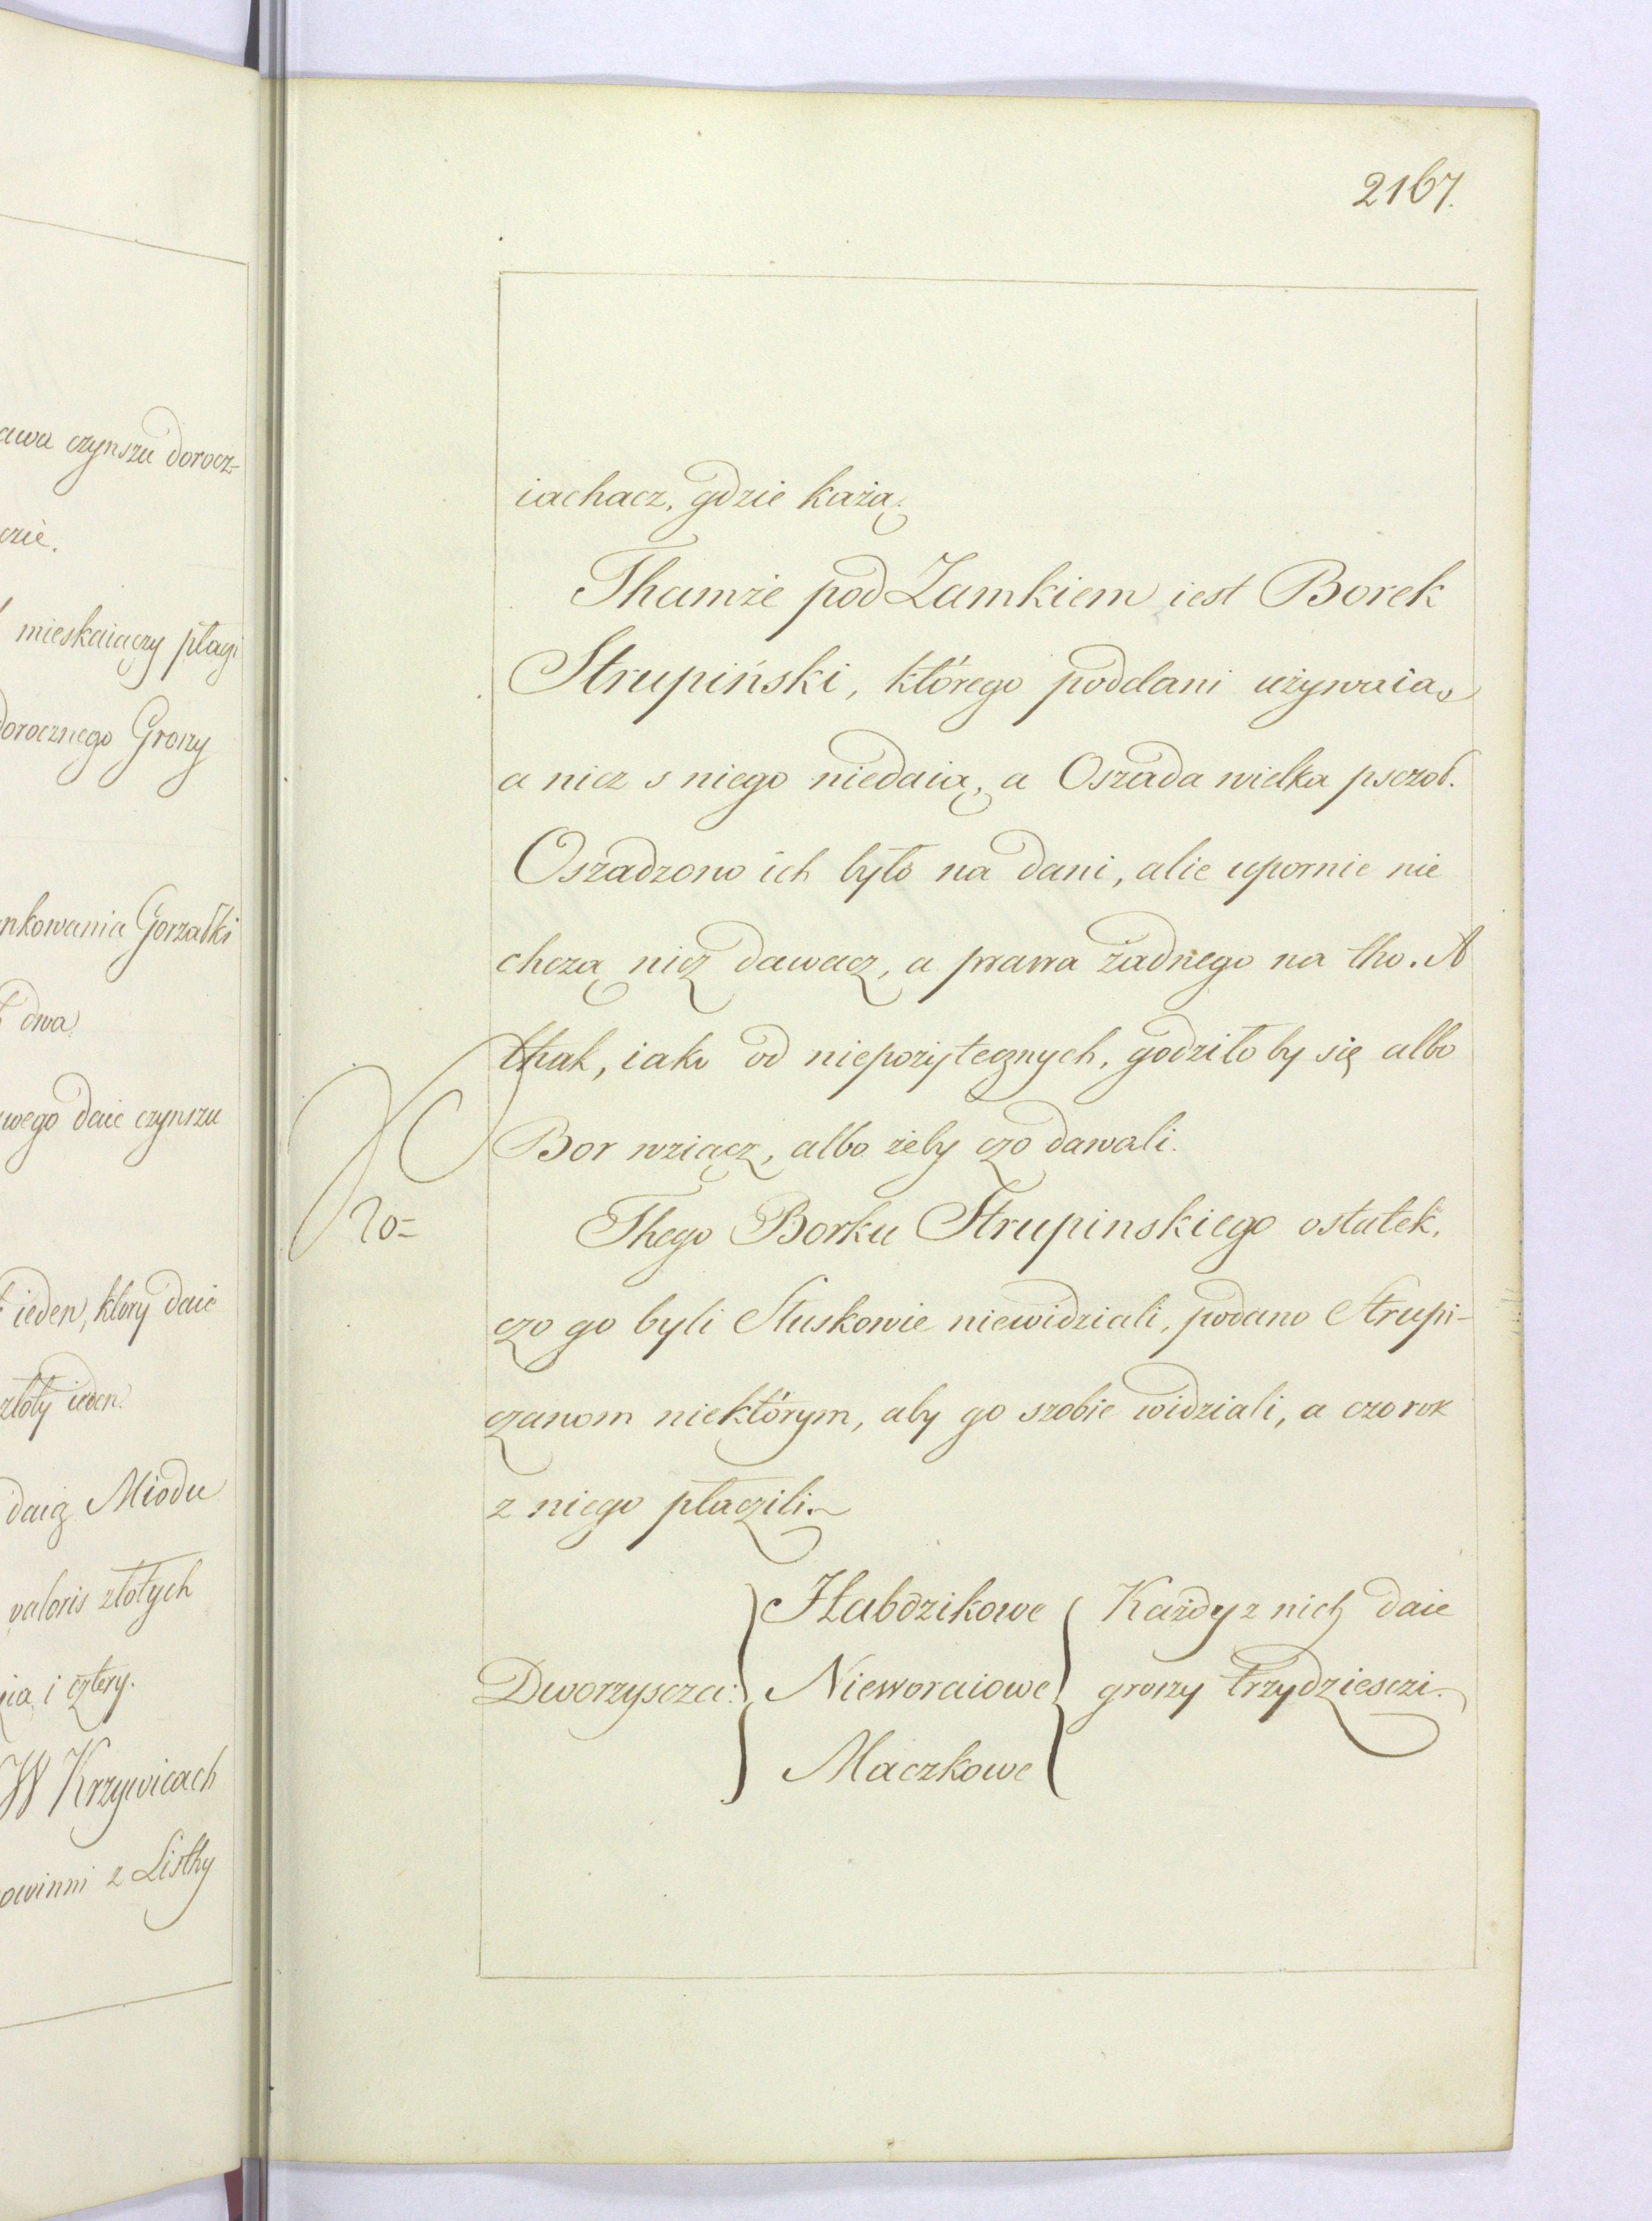 awa czynszu dorocz-
czie.
mieskaiączy płaczi
dorocznego Groszy
nkowania Gorzałki
dwa
wego daie czynszu
ieden, ktory daie
złoty ieden.
daią Miodu
valoris złotych
i cztery.
W Krzywicach
owinni z Listhy
2167.
iachacz, gdzie każą.
Thamże pod Zamkiem iest Borek
Strupiński, którego poddani używaią,
a nicz s niego niedaią, a Oszada wielka psczoł.
Oszadzono ich było na dani, alie upornie nie
chczą nicz dawacz, a prawa żadnego na tho. A
thak, iako od niepożytecznych, godziło by się albo
Bor wziącz, albo żeby czo dawali.
Thego Borku Strupinskiego ostatek,
czo go byli Sluskowie niewidziali, podano Strupi-
czanom niektórym, aby go szobie widziali, a czo rok
z niego płaczili.
Habdzikowe
Każdy z nich daie
Dworzyscza:
Nieworaiowe
groszy trzydziesczi.
Maczkowe